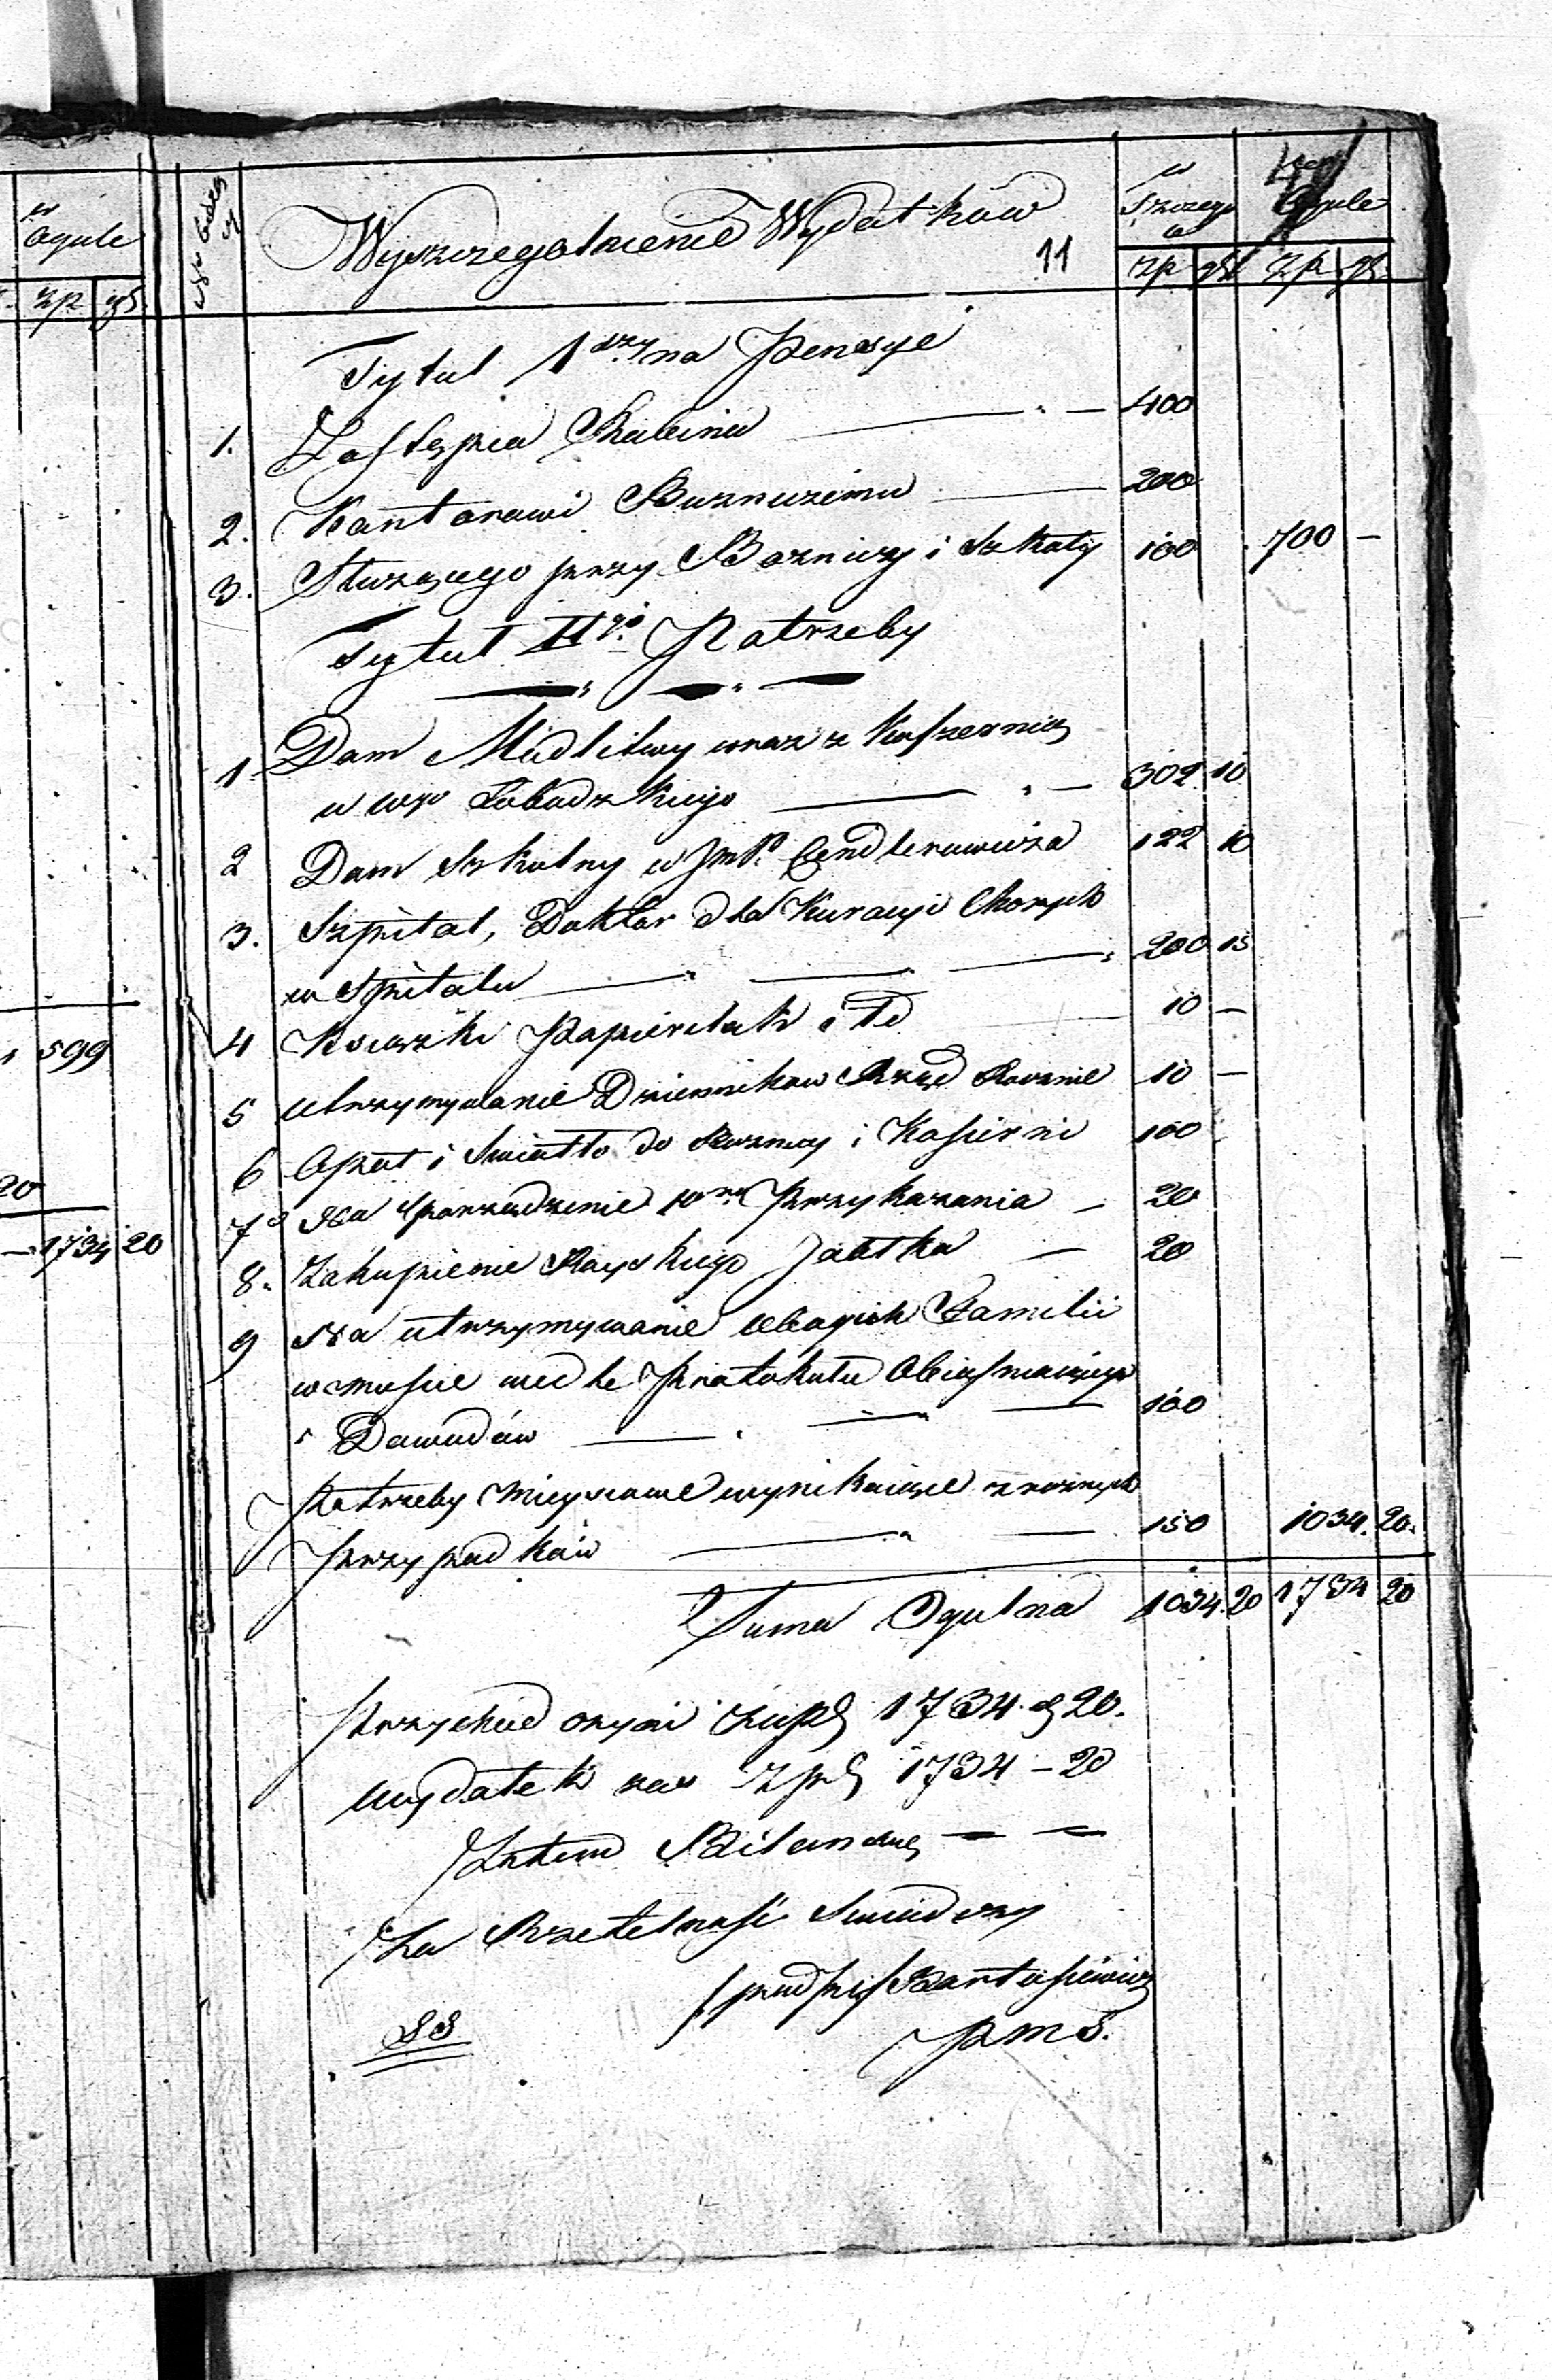 w
Ogule
zp gr
599
20
1734 20
Wyszczegolnienie Wydatków
11
w
Szczegu
w
Ogule
zp gr zp gr
Tytul 1szy na Pensye
1. Zastępca Rabina 400
2. Kantorowi Buznicznemu 200
3. Służącego przy Boznicy i Szkoły 100 700 —
Tytul IIgi Potrzeby
1 Dom Modlitwy wraz z Koszernią
u wgo 302 10
2 Dom Szkolny u JmP. Cendlerowicza 122 10
3. Szpital, Doktor dla Kuracyi Chorych
w Spitalu 200 15
4 Ksiąszki Papier Lak i td 10 —
5 Utrzymywanie Dzienników Rząd Rocznie 10 —
6 Opał i Swiatło do Boznicy i Koszerni 100
7 Na Sporządzenie 10rga Przykazania — 20
8. Zakupienie Rayskiego Jabłka — 20
9 Na utrzymywanie Ubogich Familii
w miescie wedle Protokułu Obiasniaiącego
i Dowodów 100
Potrzeby Mieyscowe wynikaiące z roznych
Przypadków 150 1034. 20.
Suma Ogulna 1034. 20 1734 20
Przychod czyni Złpl 1734 g 20.
Wydatek zas Złpl 1734 — 20
Zatem Bilansuie — —
Za Rzetelnosć Swiadczy
podpis Bartosiewicz
PmS.